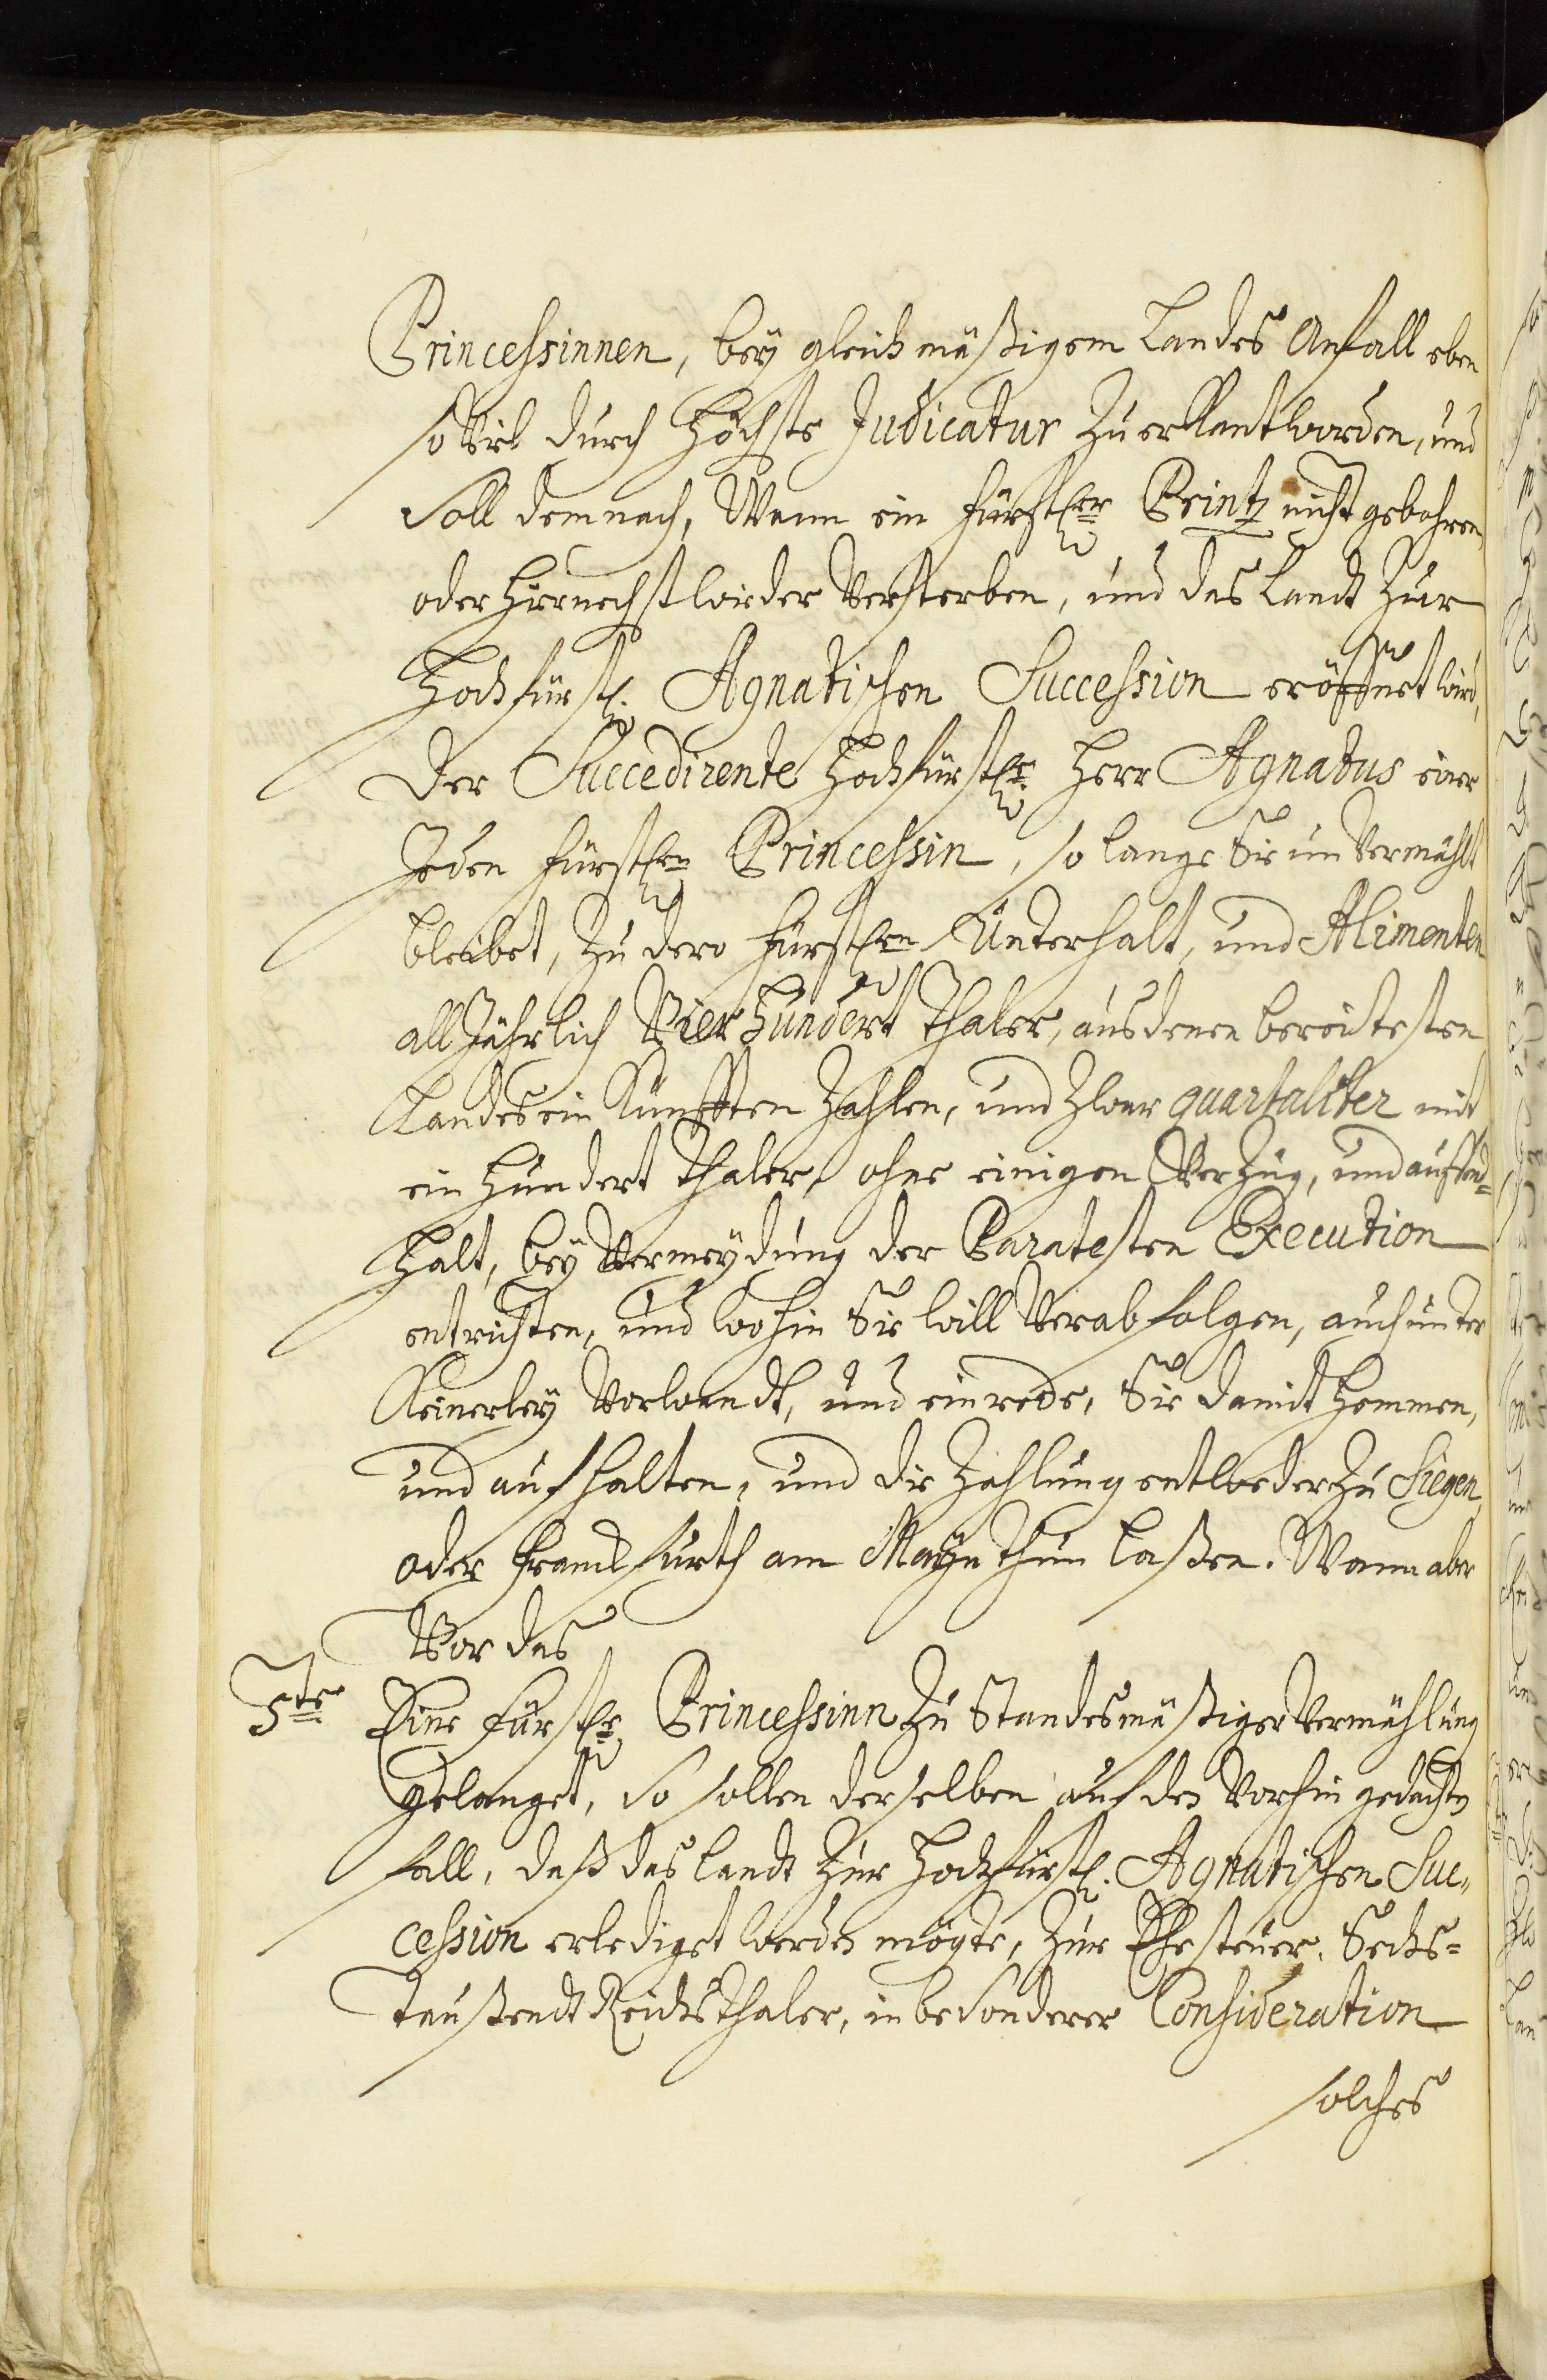 Princessinnen, bey gleichmäßigem Landes Anfall eben
so viel durch Höchste Judicatur zuerkant worden, und
soll demnach, Wann ein fürstl.er Printz nicht gebohren,
oder hiernechst wieder Versterben, und das Landt zur
Hochfürstl. Agnatischen Succession eröffnet wird,
der Succedirente Hochfürstl.e Herr Agnatus einer
Jeden fürstl.en Princessin, so lange Sie unvermählt
bleibet, zu dero fürstl.en Unterhalt, und Alimenten
all Jährlich Vier Hundert Thaler, aus denen bereitesten
Landes ein Künfften zahlen, und zwar quartaliter mit
ein hundert Thaler, ohne einigen Verzug, und auffend=
halt, bey Vermeydung der Paratesten Execution
entrichten, und wohin Sie will Verabfolgen, auch unter
Keinerley Vorwandt, und einrede, Sie damit hemmen,
und aufhalten, und die Zahlung entweder zu Siegen,
oder Franckfurth am Mayn thun laßen. Wann aber
Vor das
5te Eine Fürstl.e Princessinn zu Standesmäßiger Vermählung
gelanget, so sollen derselben auf den Vorhin gedachten
fall, daß das Landt zur Hochfürstl. Agnatischen Suc=
cession erlediget werden mögte, zur Ehesteuer, Sechs=
Taußendt Reichsthaler, in besonderer Consideration
solches